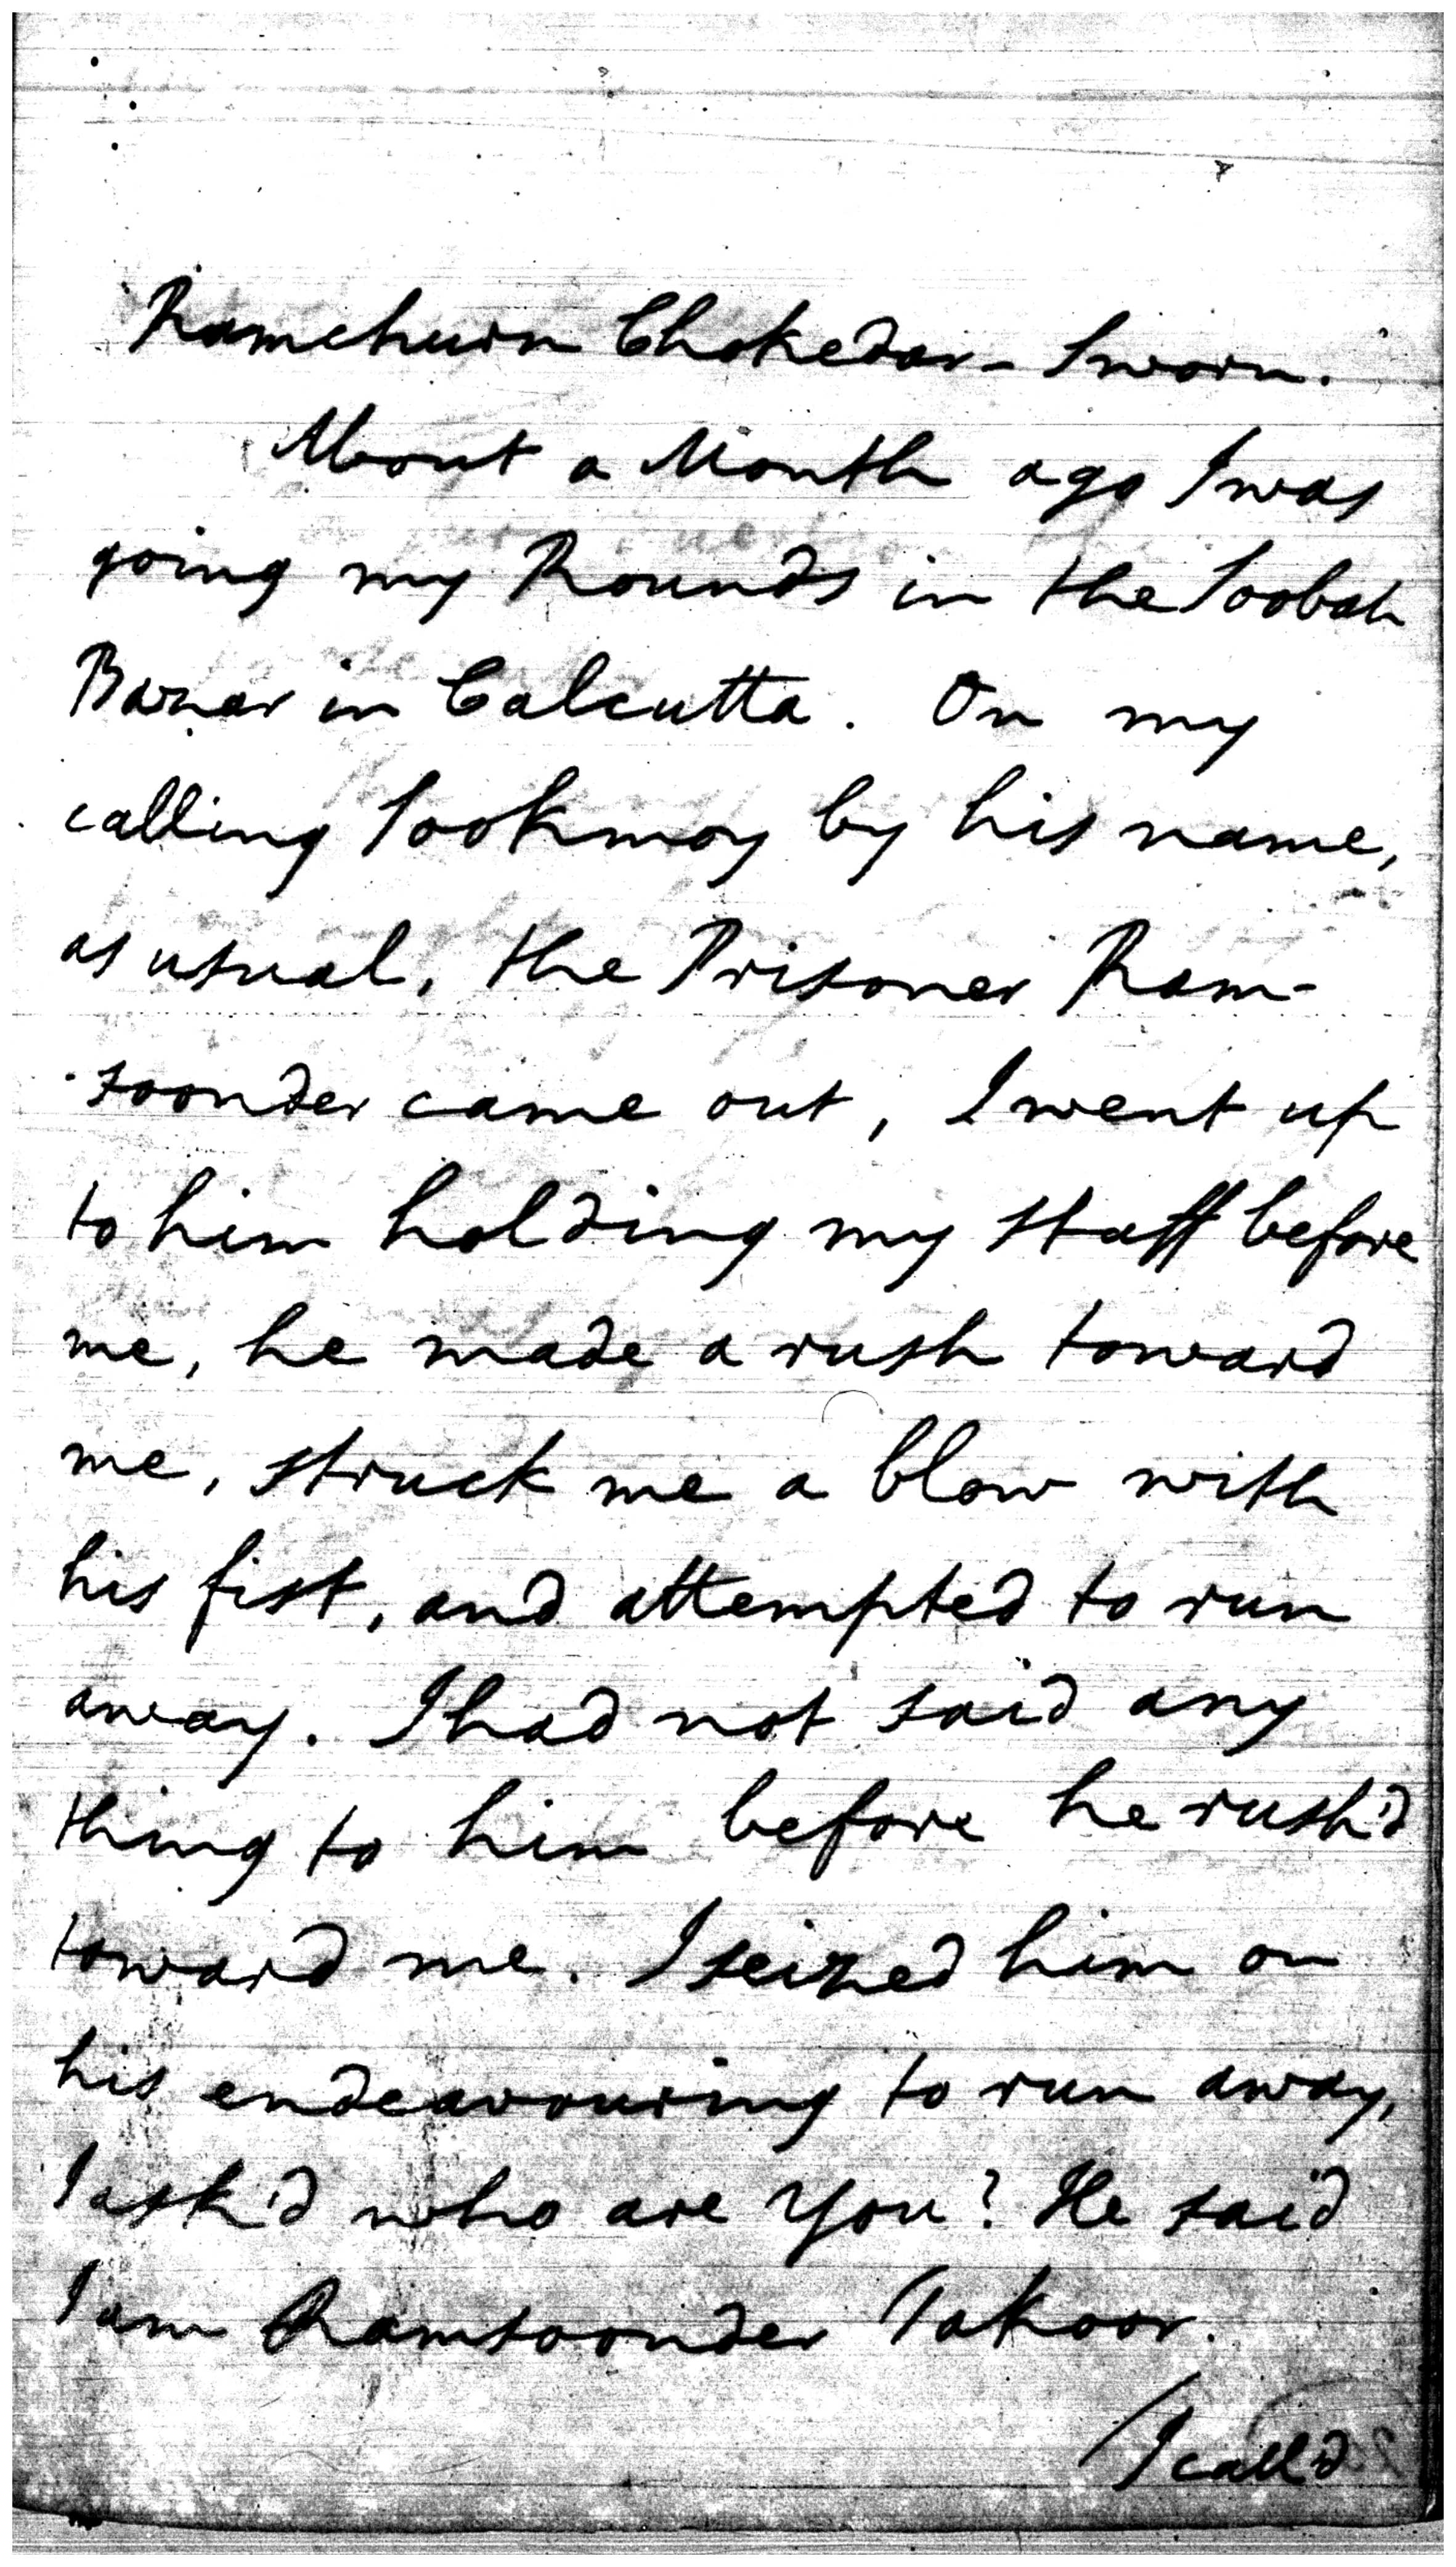 Ramchurn Chokedar - Sworn.
About a Month ago I was
going my Rounds in the Soobah
Bazar in Calcutta. On my
calling Sookmoy by his name,
as usual, the Prisoner Ram-
soonder came out, I went up
to him holding my staff before
me, he made a rush toward
me, struck me a blow with
his fist, and attempted to run
away. I had not said any
thing to him before he rush'd
toward me. I seized him on
his endeavouring to run away,
I ask'd who are you? He said
I am Ramsoonder Takoor.
I call'd